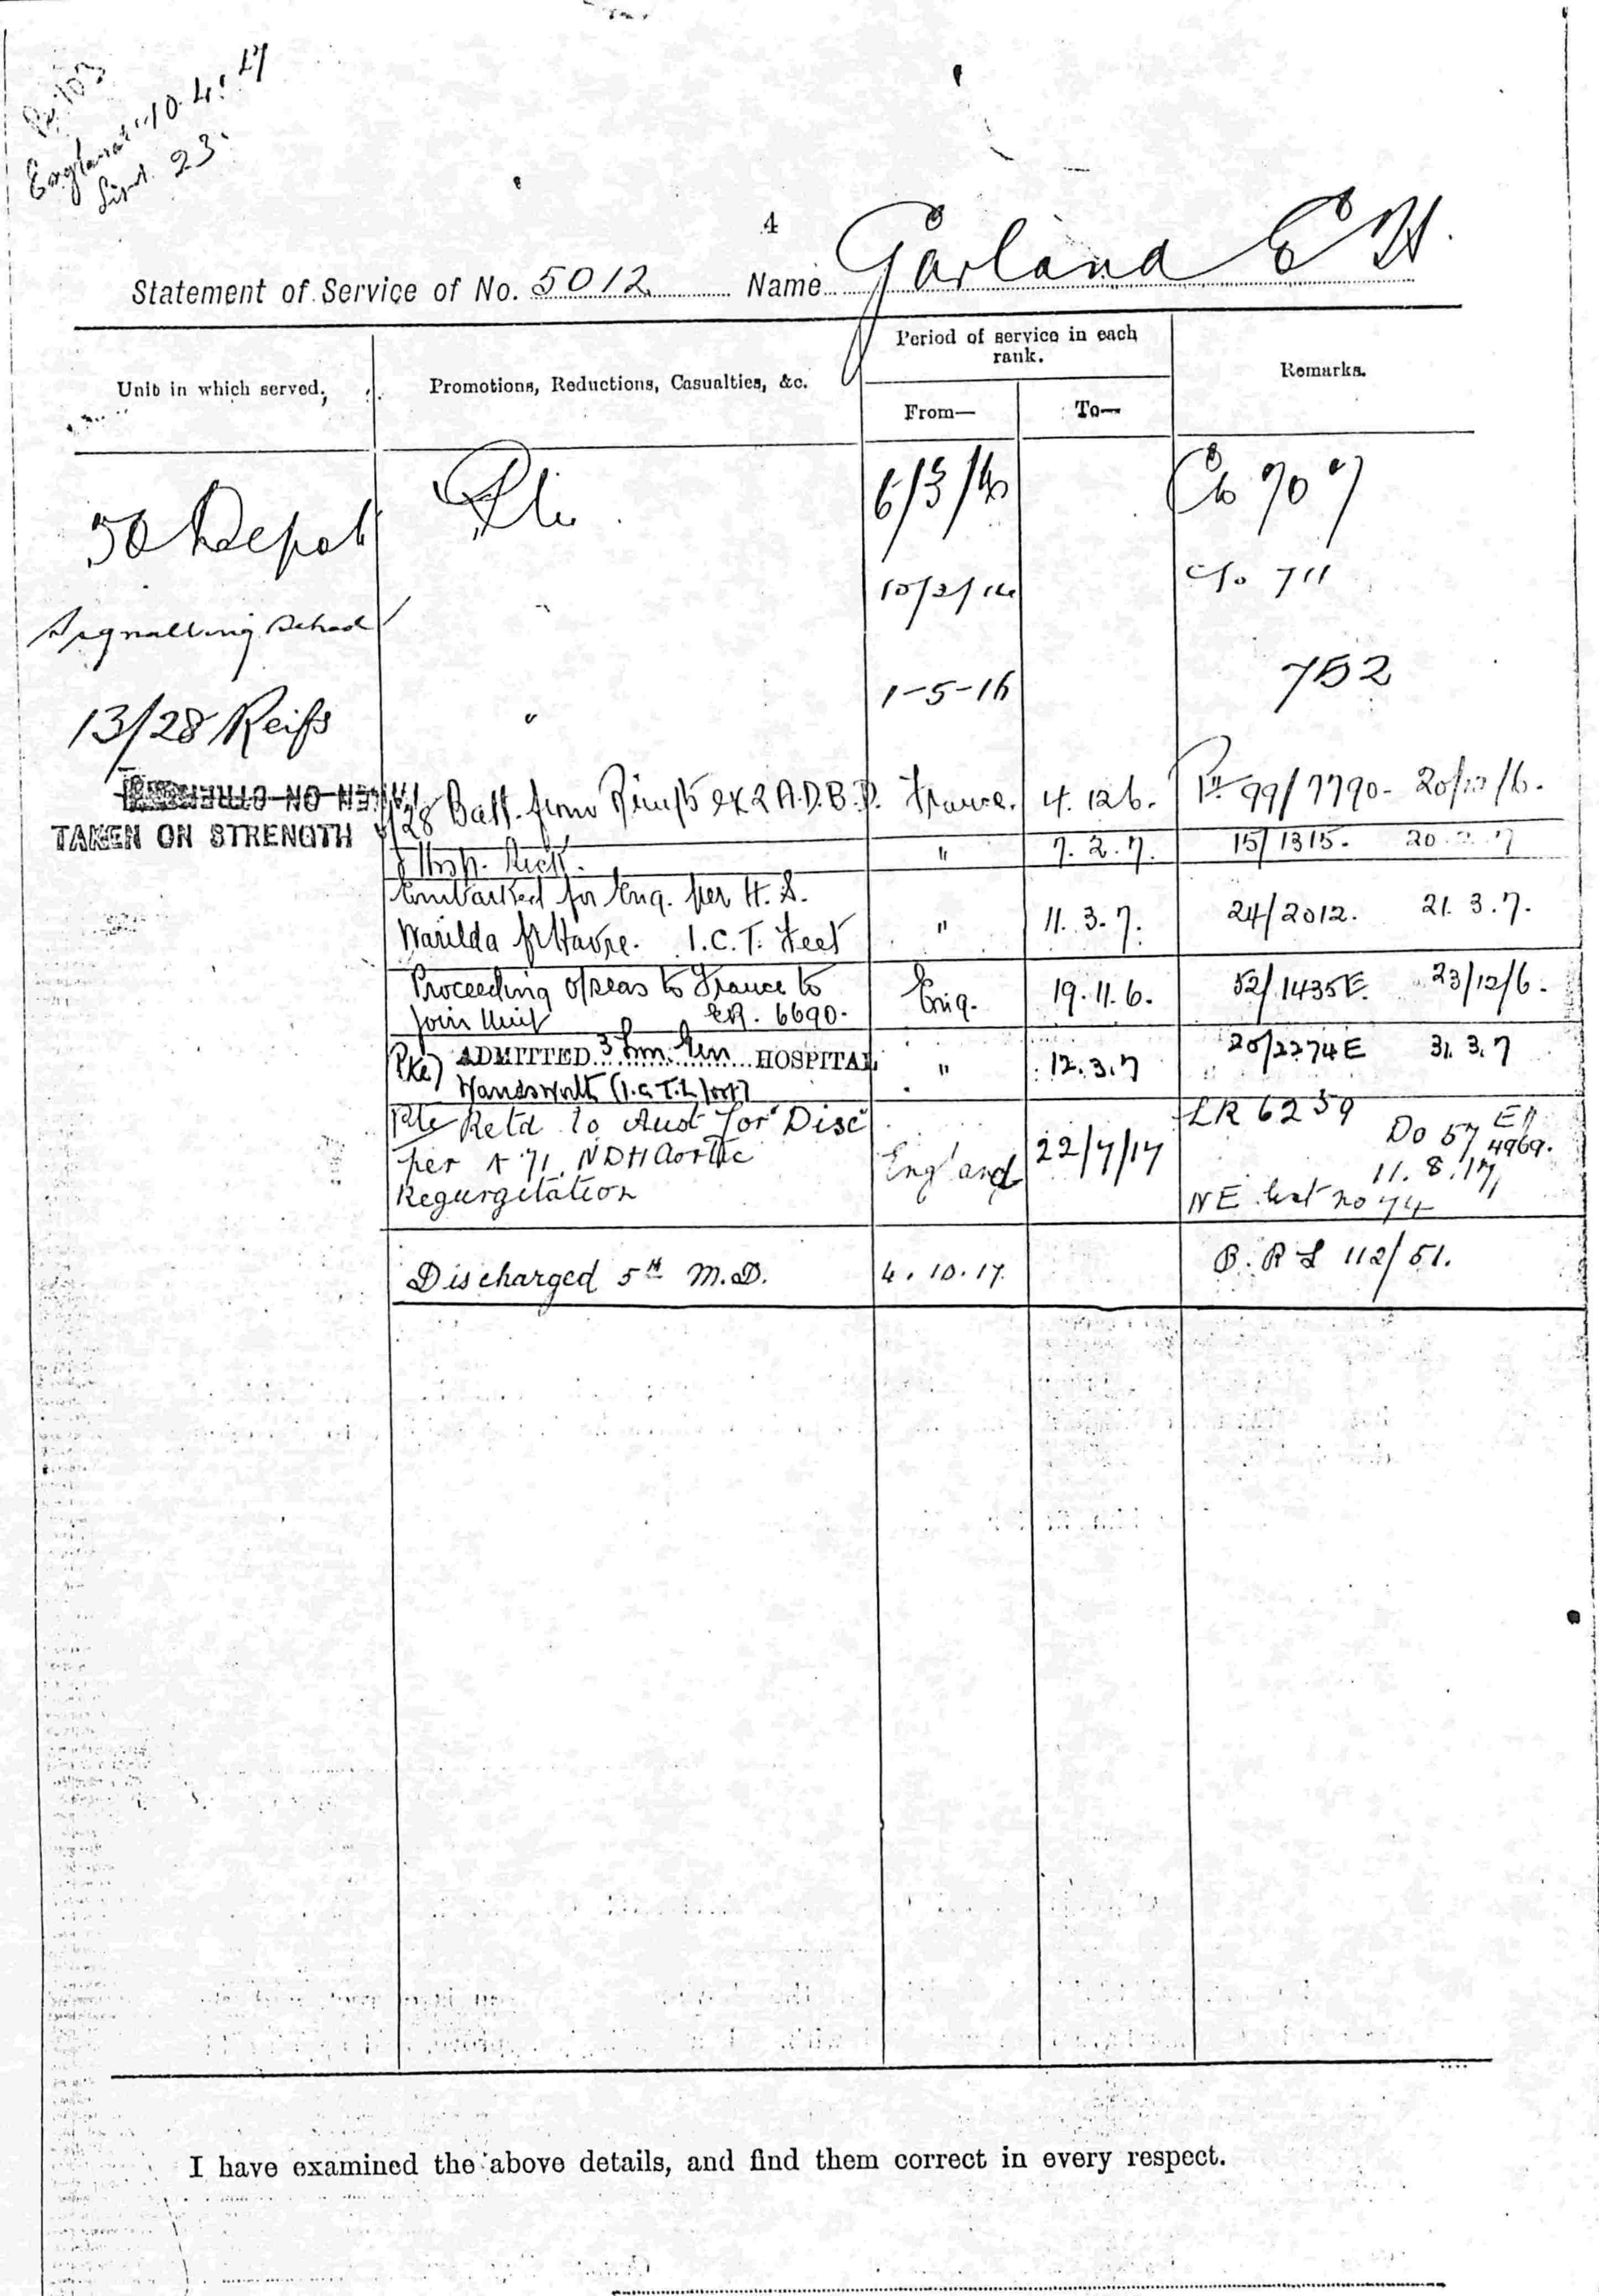 England 10.4.17
List 23.
4
Statement of Service of No. 5012 Name Garland E H.
Unit in which served.
Promotions, Reductions, Casualties, &c.
Period of service in each rank.
From—
To—
Remarks.
50 Depot Pte 6/3/16 Co 707
Signalling School " 10/3/16 C/o 711
13/28 Reifs " 1-5-16 752
TAKEN ON STRENGTH
TAKEN ON STRENGTH 28 Batt. from Reinfts ex 2 A.D.B.D. France. 4.12.6. Pt 99/7790- 20/12/6.
Hosp. Sick. " 7.2.7. 15/1315. 20.2.7
Embarked for Eng. per H.S.
Warilda fr Havre. I.C.T. Feet " 11.3.7. 24/2012. 21.3.7.
Proceeding o/seas to France to
join Unit ER. 6690. Eng. 19.11.6. 52/1435E. 23/12/6.
(Pte) ADMITTED 3 Lon. Gen HOSPITAL
Wandsworth (I.C.T. L foot) " 12.3.7 20/2274E 31.3.7
Pte Retd to Aust for "Disc"
per A 71. NDH Aortic
Regurgitation England 22/7/17
LR 6259
Do 57 4969.
11.8.17
NE list no 74
Discharged 5th M.D. 4.10.17. B.R L 112/51.
I have examined the above details, and find them correct in every respect.